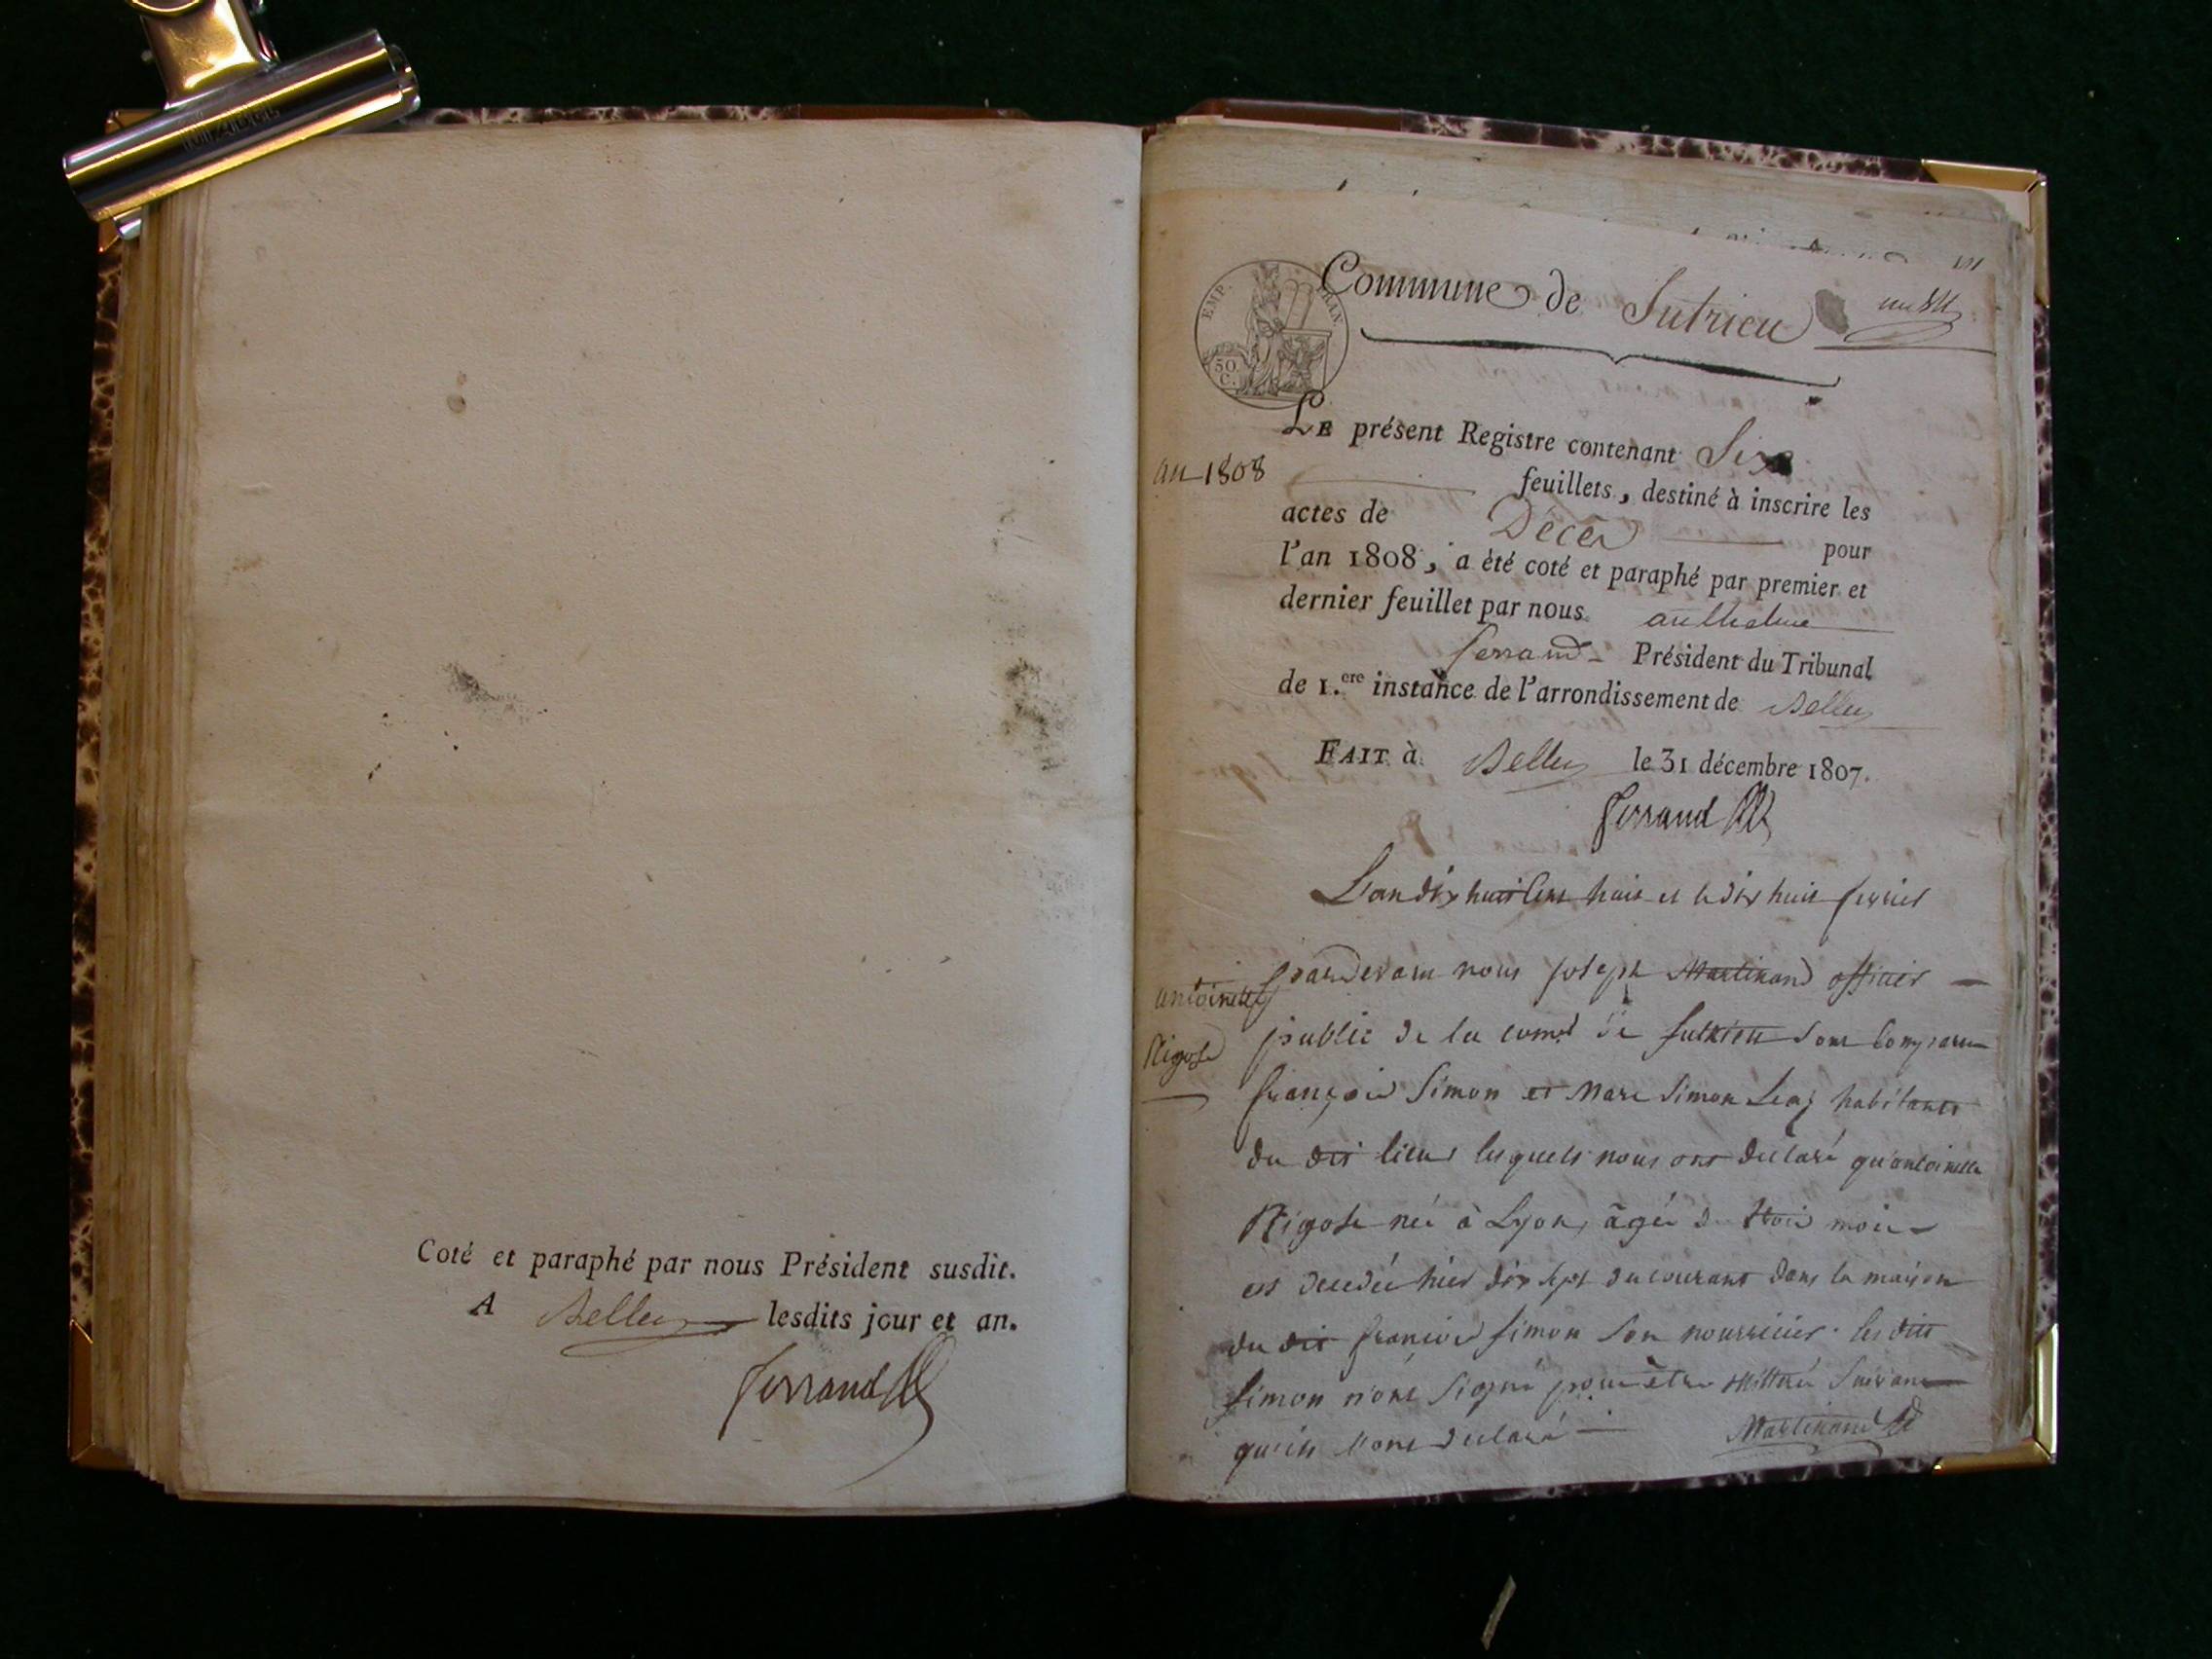 Coté et paraphé par nous Président susdit.
A Belley lesdits jour et an.
Ferrand
Commune de Sutrieu
EMP. FRAN.
50 C.
LE présent Registre contenant Six
an 1808
feuillets, destiné à inscrire les
actes de Décès pour
l'an 1808, a été coté et paraphé par premier et
dernier feuillet par nous anthelme
ferrand Président du Tribunal
de 1.ere instance de l'arrondissement de Belley
FAIT à Belley le 31 décembre 1807.
Ferrand
L'an dix huit cent huit et le dix huit fevrier
pardevant nous joseph Martinand officier
antoinette
public de la comne de sutrieu sont comparu
Rigose
françois Simon et Marc Simon habitants
du dit lieu lesquels nous ont déclaré qu'antoinette
Rigose née à Lyon, âgée de trois mois
est decedée hier dix sept du courant dans la maison
du dit françois simon son nourricier. les dits
simon n'ont signé pour être illitteré suivant
qu'ils l'ont declaré
Martinand